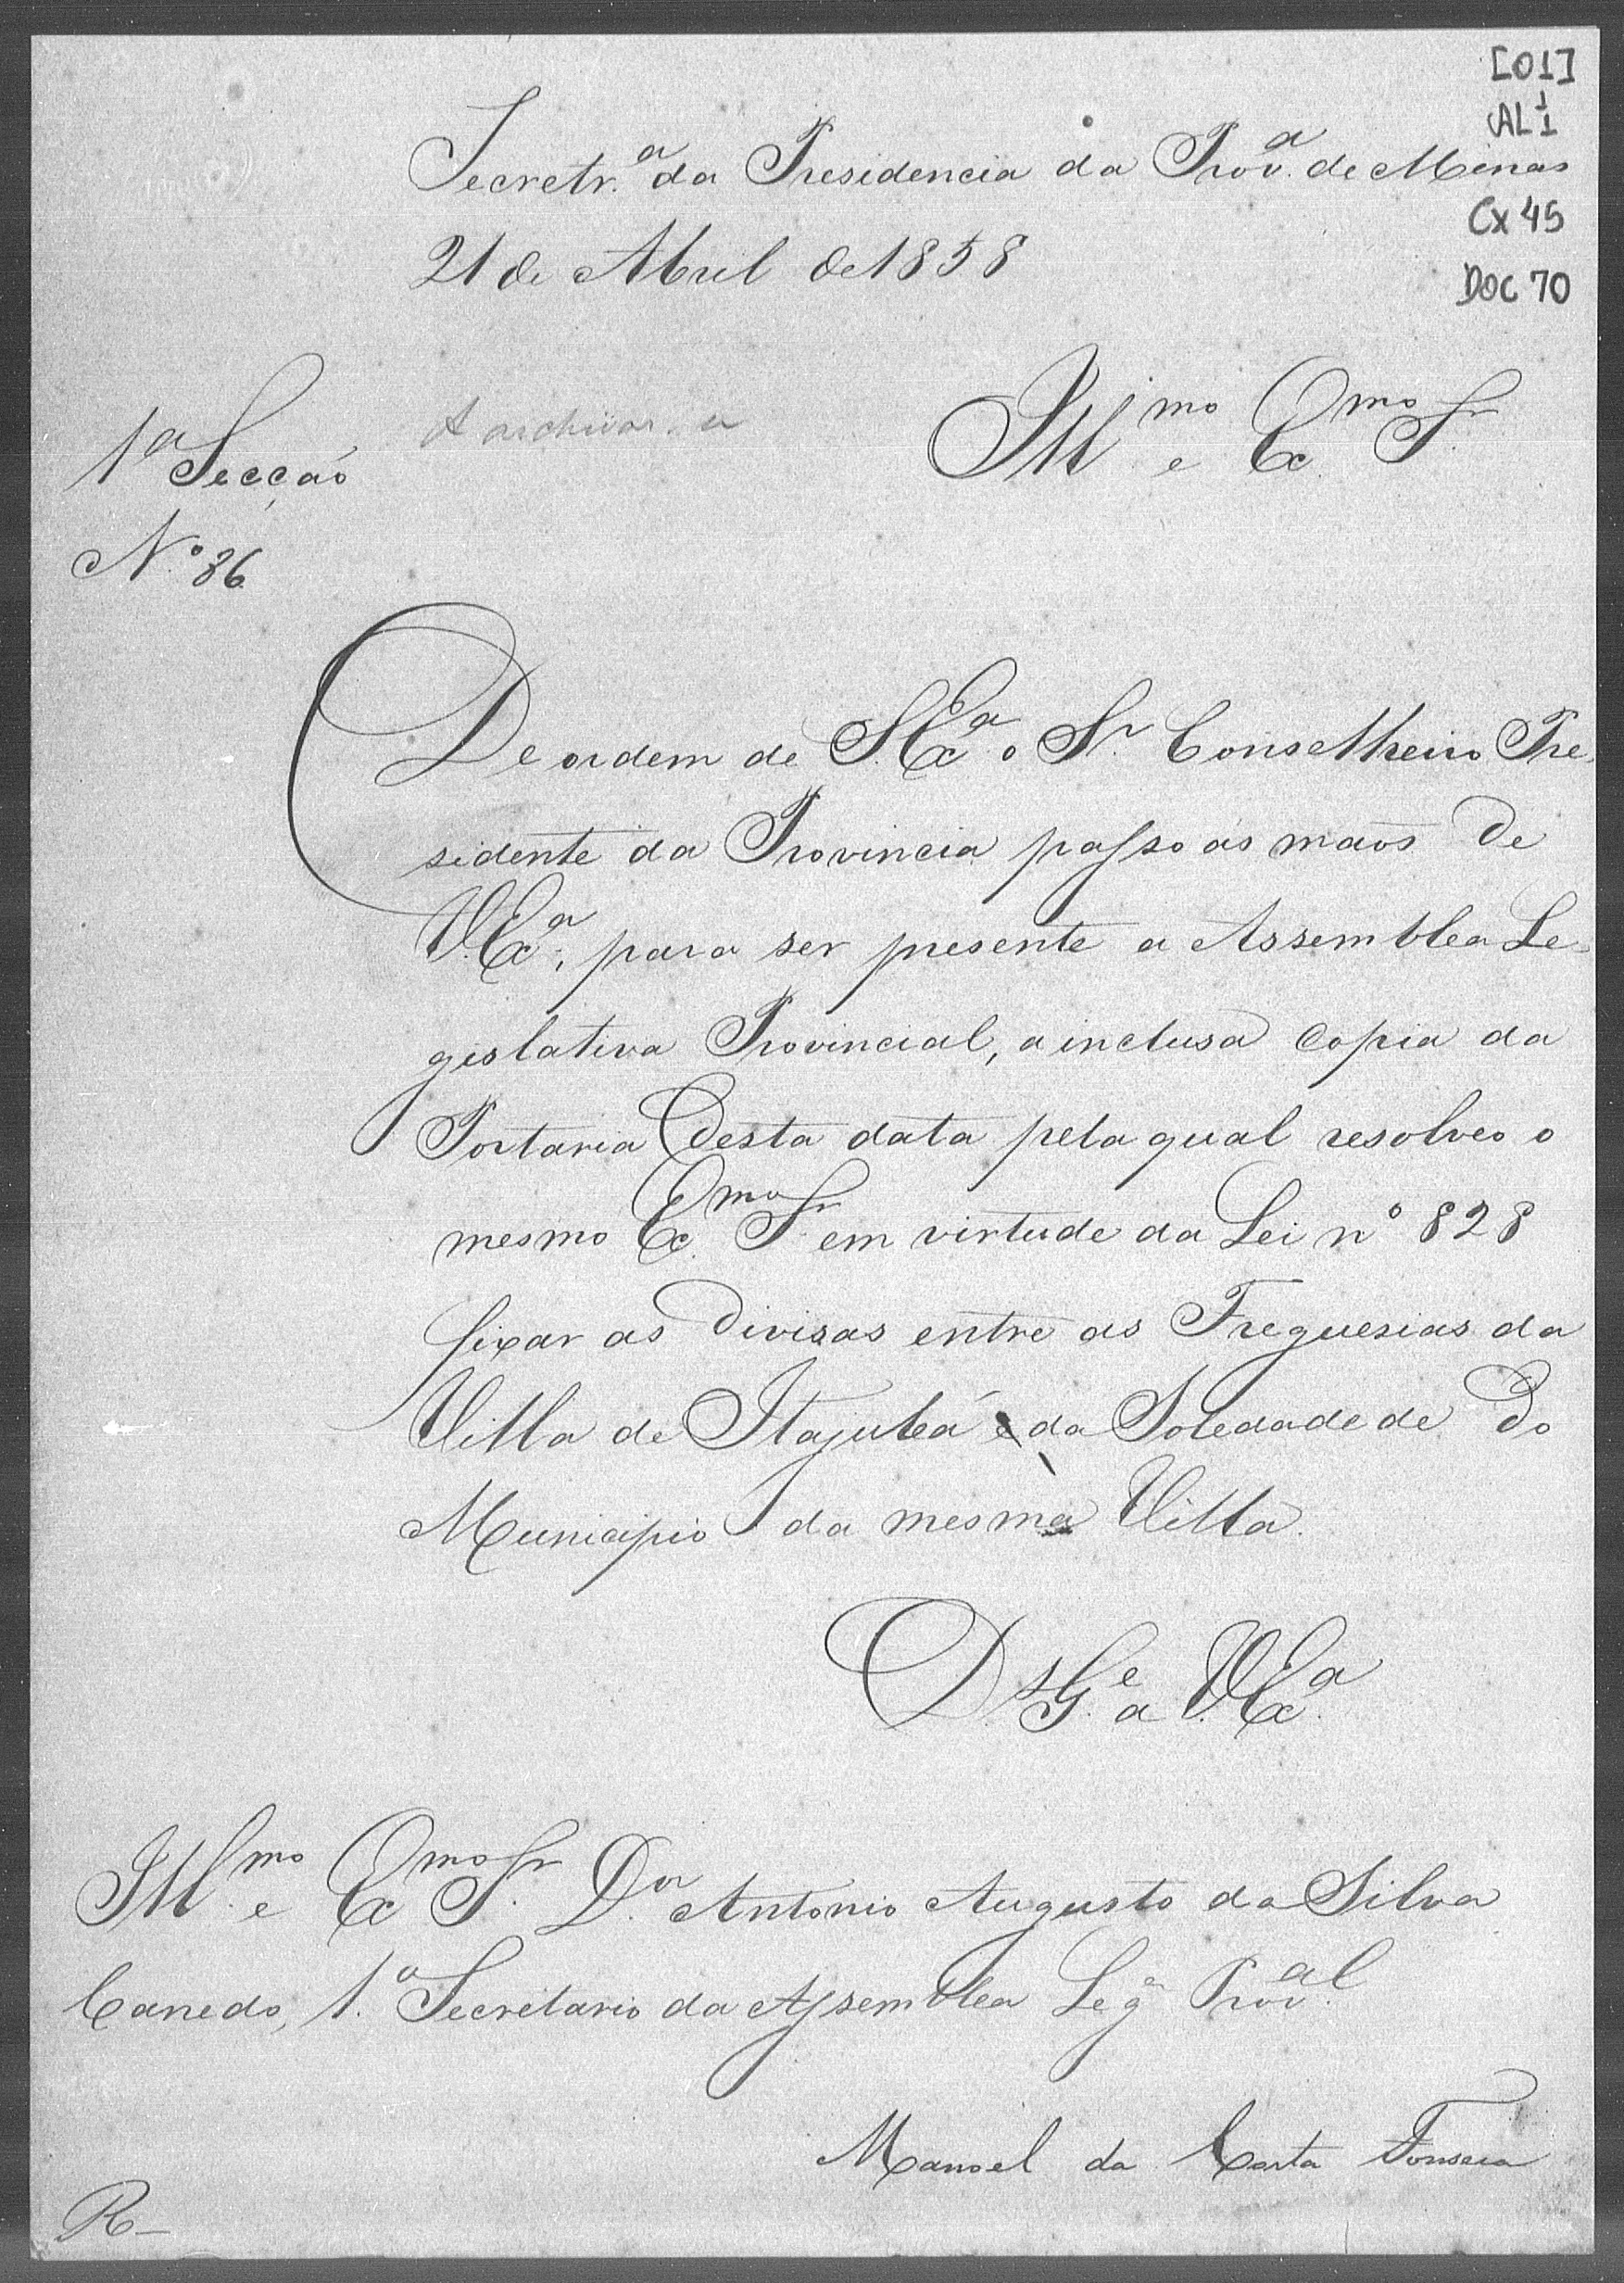 [01]
AL 1/1
Secretr.ª da Presidencia da Prov.ª de Minas
21 de Abril de 1858
Cx 45
DOC 70
Ill.mo e Ex.mo Sr.
A archivar-se
1ª Secção
N.º 36
De ordem de S. Ex.ª o Sr. Conselheiro Pre-
sidente da Provincia passo ás mãos de
V. Ex.ª, para ser presente a Assemblea Le-
gislativa Provincial, a inclusa copia da
Portaria desta data pela qual resolveo o
mesmo Ex.mo Sr. em virtude da Lei nº 828
fixar as divisas entre as Freguesias da
Villa de Itajubá e da Soledade de do
Municipio da mesma Villa.
D.s G.e a V. Ex.ª
Ill.mo e Ex.mo Sr. D.or Antonio Augusto da Silva
Canedo, 1.º Secretario da Assemblea Leg.ª Prov.al
Manoel da Costa Fonseca
R—